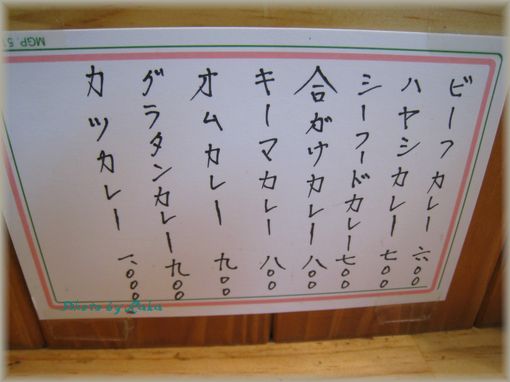 ビーフカレー 六〇〇
ハヤシカレー 七〇〇
シーフードカレー 七〇〇
合がけカレー 八〇〇
キーマカレー 八〇〇
オムカレー 九〇〇
グラタンカレー 九〇〇
カツカレー 一、〇〇〇
Photo by